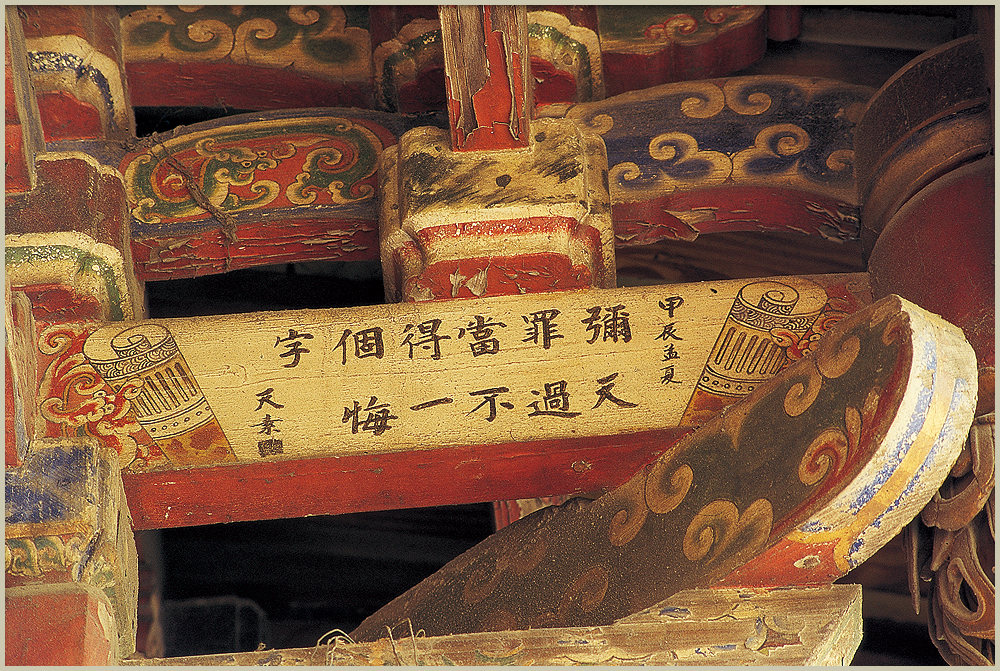 甲辰孟夏
彌天
罪過
當不
得一
個悔
字
天素